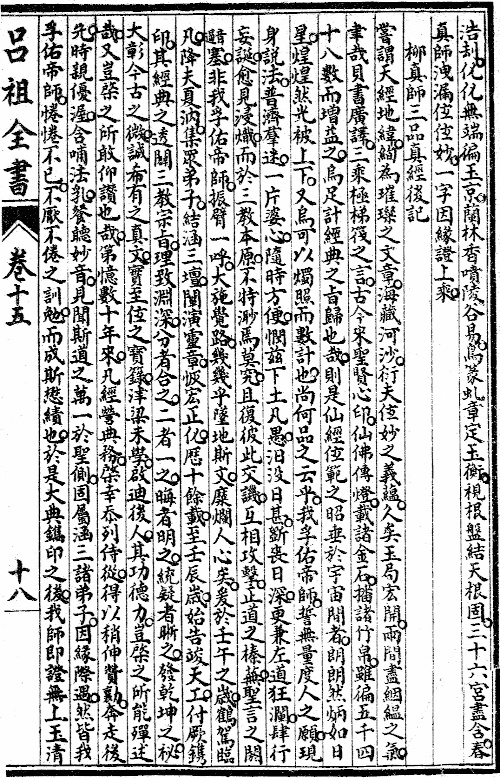 浩刦化化無端徧玉京蘭林香噴陵谷易鳥篆虬章定玉衡視根盤結天根固三十六宮盡含春
真師洩漏伭伭妙一字因緣證上乘
柳真師三品真經後記
嘗謂天經地緯絢為璀璨之文章海藏河沙衍天伭妙之義蘊久矣玉局宏開兩間盡絪縕之氣
聿哉貝書廣譯三乘極梯筏之言古今來聖賢心印仙佛傳燈載諸金石播諸竹帛雖徧五千四
十八數而增益之烏足計經典之旨歸也哉則是仙經伭範之昭垂於宇宙間者朗朗然炳如日
星煌煌然光被上下又烏可以燭照而數計也尚何品之云乎我孚佑帝師誓無量度人之願現
身說法普濟羣迷一片婆心隨時方便憫茲下土凡愚汨没日甚斲喪日深更兼左道狂瀾肆行
妄誕愈見浸熾而於三教本原不特渺焉莫究且復彼此交譏互相攻擊正道之榛蕪聖言之閼
塞非我孚佑帝師振臂一呼大施覺路幾幾乎墜地斯文糜爛人心矣爰於壬午之歲鶴駕臨
凡降夫夏汭集眾弟子結涵三壇闡演靈章恢宏正化曆十餘載至壬辰歲始告竣天工付厥鐫
印其經典之透闢三教宗旨理致淵深分者合之二者一之晦者明之統疑者晰之發乾坤之秘
大彰今古之微誠希有之真文實至伭之寶籙津梁末學啟迪後人其功德力豈棨之所能殫述
哉又豈棨之所敢仰讚也哉弟憶數十年來凡經營典務棨幸忝列侍從得以稍伸贊勷奔走後
先時親優渥含哺法乳餐聽妙音見聞斯道之萬一於聖側固屬涵三諸弟子因緣際遇然皆我
孚佑帝師惓惓不已不厭不倦之訓勉而成斯懋績也於是大典鐫印之後我師即證無上玉清
呂祖全書
卷十五
十八